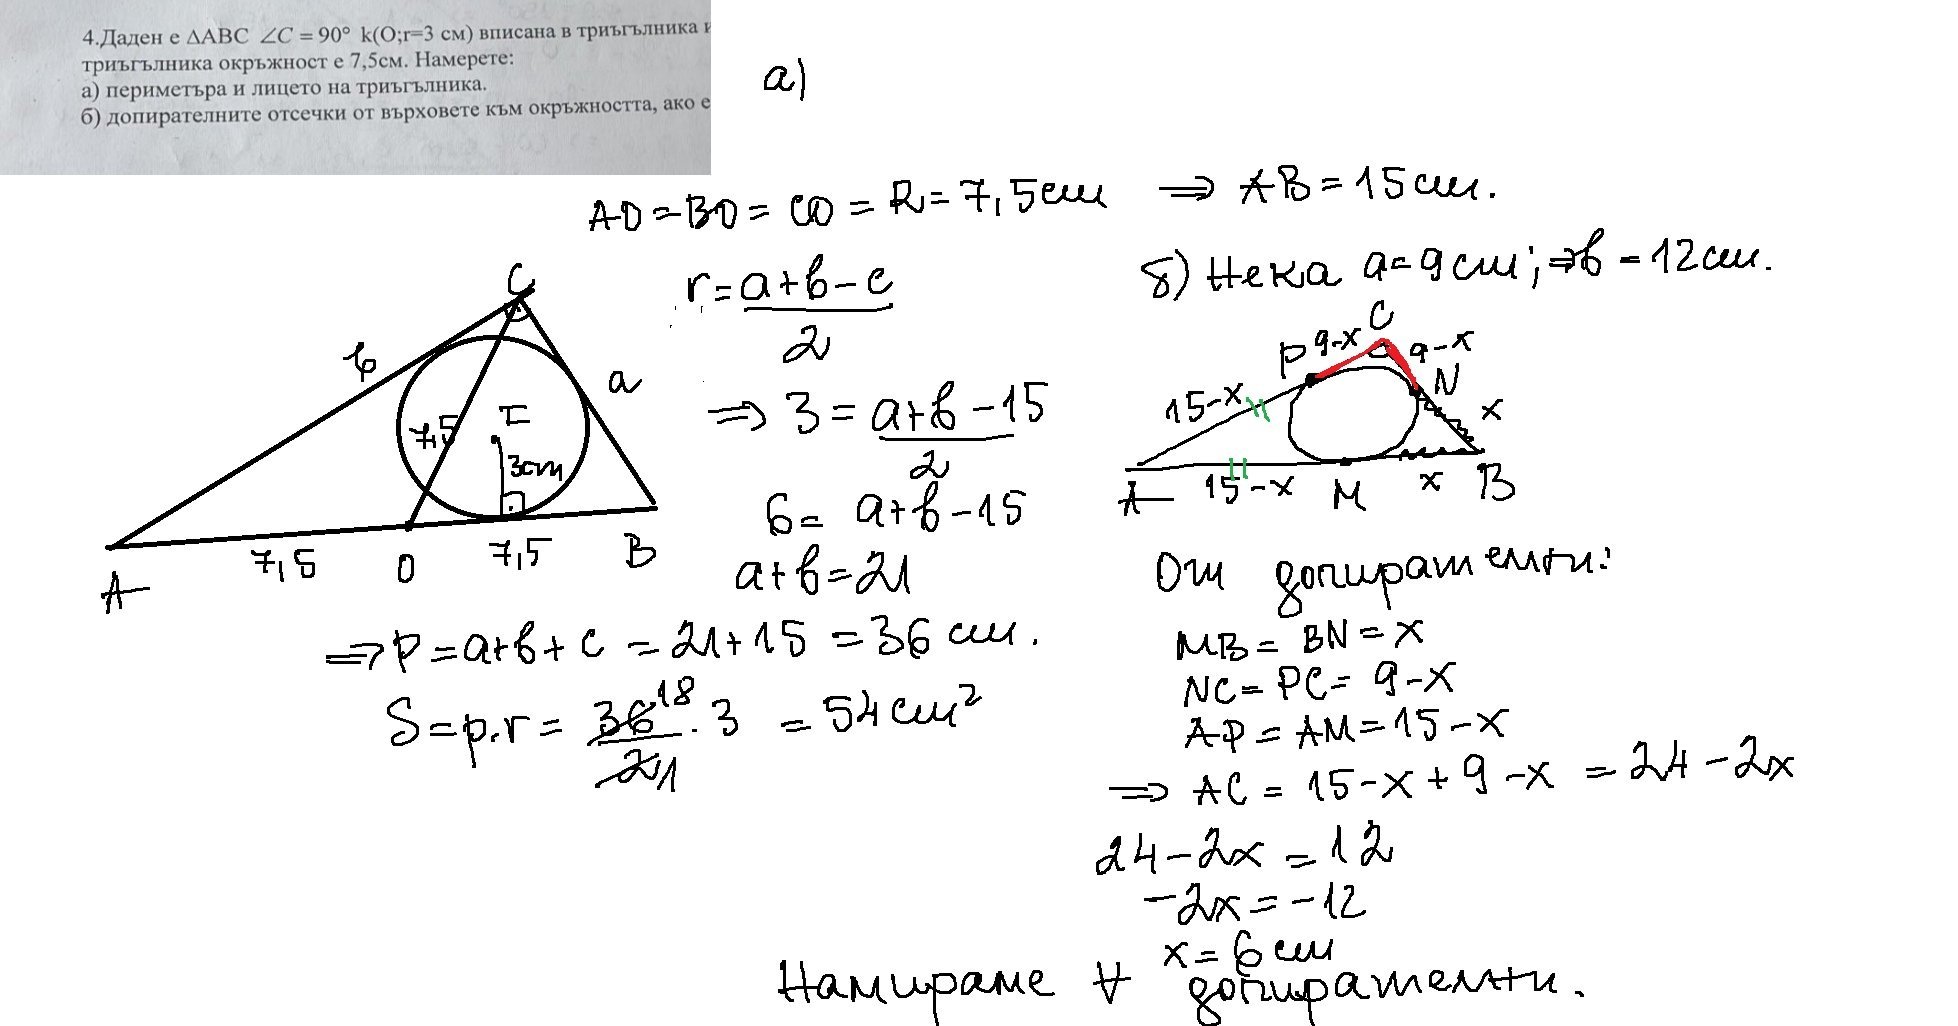 4.Даден е ΔABC ∠C = 90° k(O;r=3 см) вписана в триъгълника и
триъгълника окръжност е 7,5см. Намерете:
а) периметъра и лицето на триъгълника.
б) допирателните отсечки от върховете към окръжността, ако е
а)
AO = BO = CO = R = 7,5 cm ⇒ AB = 15 cm.
r = (a+b-c)/2
⇒ 3 = (a+b-15)/2
6 = a+b-15
a+b=21
⇒ P = a+b+c = 21+15 = 36 cm.
S = p.r = 36/2 18/1 . 3 = 54 cm²
C
b
a
7,5
I
3cm
A
7,5
O
7,5
B
б) Нека a=9cm; ⇒ b = 12cm.
C
P 9-x
9-x
N
15-x
x
A
15-x
M
x
B
От допирателни:
MB = BN = x
NC = PC = 9-x
AP = AM = 15-x
⇒ AC = 15-x+9-x = 24-2x
24-2x = 12
-2x = -12
x = 6 cm
Намираме ∀ допирателни.